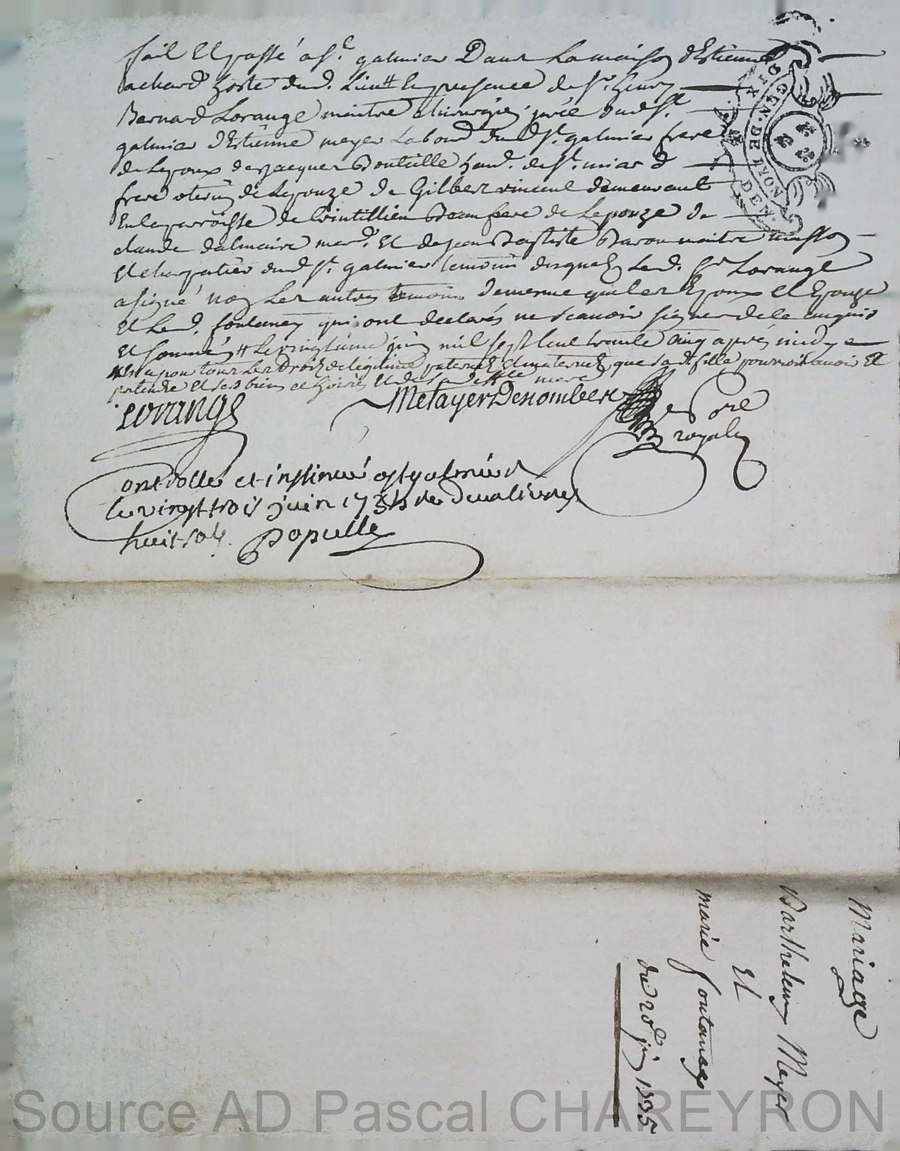 fait et passé a st galmier Dans La maison d'Estienne
achard hoste dud. Lieu En presence de sr. henry
Bernard Lorange maitre chirurgien juré dud st.
galmier d'Estienne meyer Laboud. dud st. galmier frere
de Lepoux de jacques Bouteille hand. de st.
frere uterin de Lepouze de Gilbert vincent demeurant
En la parroisse de beaufrere de Lepouze de
claude dalmaire mar. Et de jean Baptiste Baron maitre masson
Et charpatier dud st. galmier temoins desquels Led. sr Lorange
a signé non Les autres temoins de meme que les Epoux et Epouze
Et Led. fontaney qui ont declarés ne scavoir signer de ce enquis
Et sommés Le vingtieme juin mil sept cent trente cinq apres midy
pour tous Les Droits de légitime paternel Et maternel que sad fille pourroit avoir Et
pretendre Et ses biens
Lorange Metayer Desombeste
Nore royale
Controllé et insinué a st galmier
le vingt trois juin 1735 douze livres
huit sols. Populle
GEN. DE LYON
Mariage
Barthelemy Meyer
Et
marie fontaney
du 20e jn 1735
Source AD Pascal CHAREYRON